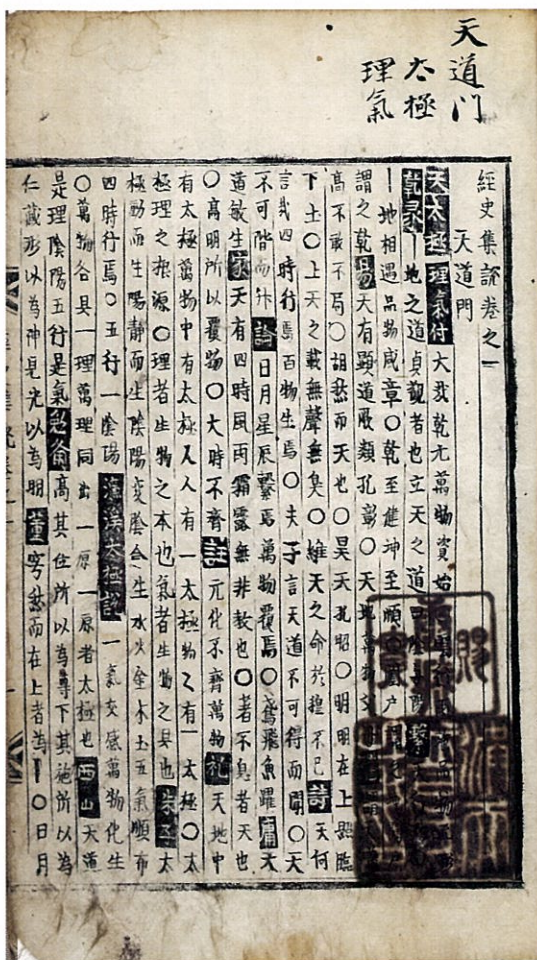 天道门
太極
理氣
經史集說卷之一
天道門
天太極理氣付 大哉乾元萬物資始
乾彖〡地之道貞觀者也立天之道曰陰與陽繫
〡地相遇品物咸章〇乾至健坤至順〇
謂之乾易天有顯道厥類孔彰〇天地萬物父
高不敢不局〇胡然而天也〇昊天孔昭〇明明在上照臨
下土〇上天之載無聲無臭〇維天之命於穆不已詩天何
言哉四時行焉百物生焉〇夫子言天道不可得而聞〇天
不可階而升論日月星辰繫焉萬物覆焉〇鳶飛魚躍庸天
道敏生家天有四時風雨霜露無非教也〇著不息者天也
〇高明所以覆物〇大時不齊註元化不齊萬物礼天地中
有太極萬物中有太極人人有一太極物々有一太極〇太
極理之根源〇理者生物之本也氣者生物之具也朱子太
極動而生陽靜而生陰陽変陰合生水火金木土五氣順布
四時行焉〇五行一陰陽濂溪太極說二氣交感萬物化生
〇萬物各具一理萬理同出一原一原者太極也西山天道
是理陰陽五行是氣勉齋高其位所以為尊下其施所以為
仁藏形以為神見光以為明董穹然而在上者為〡〇日月